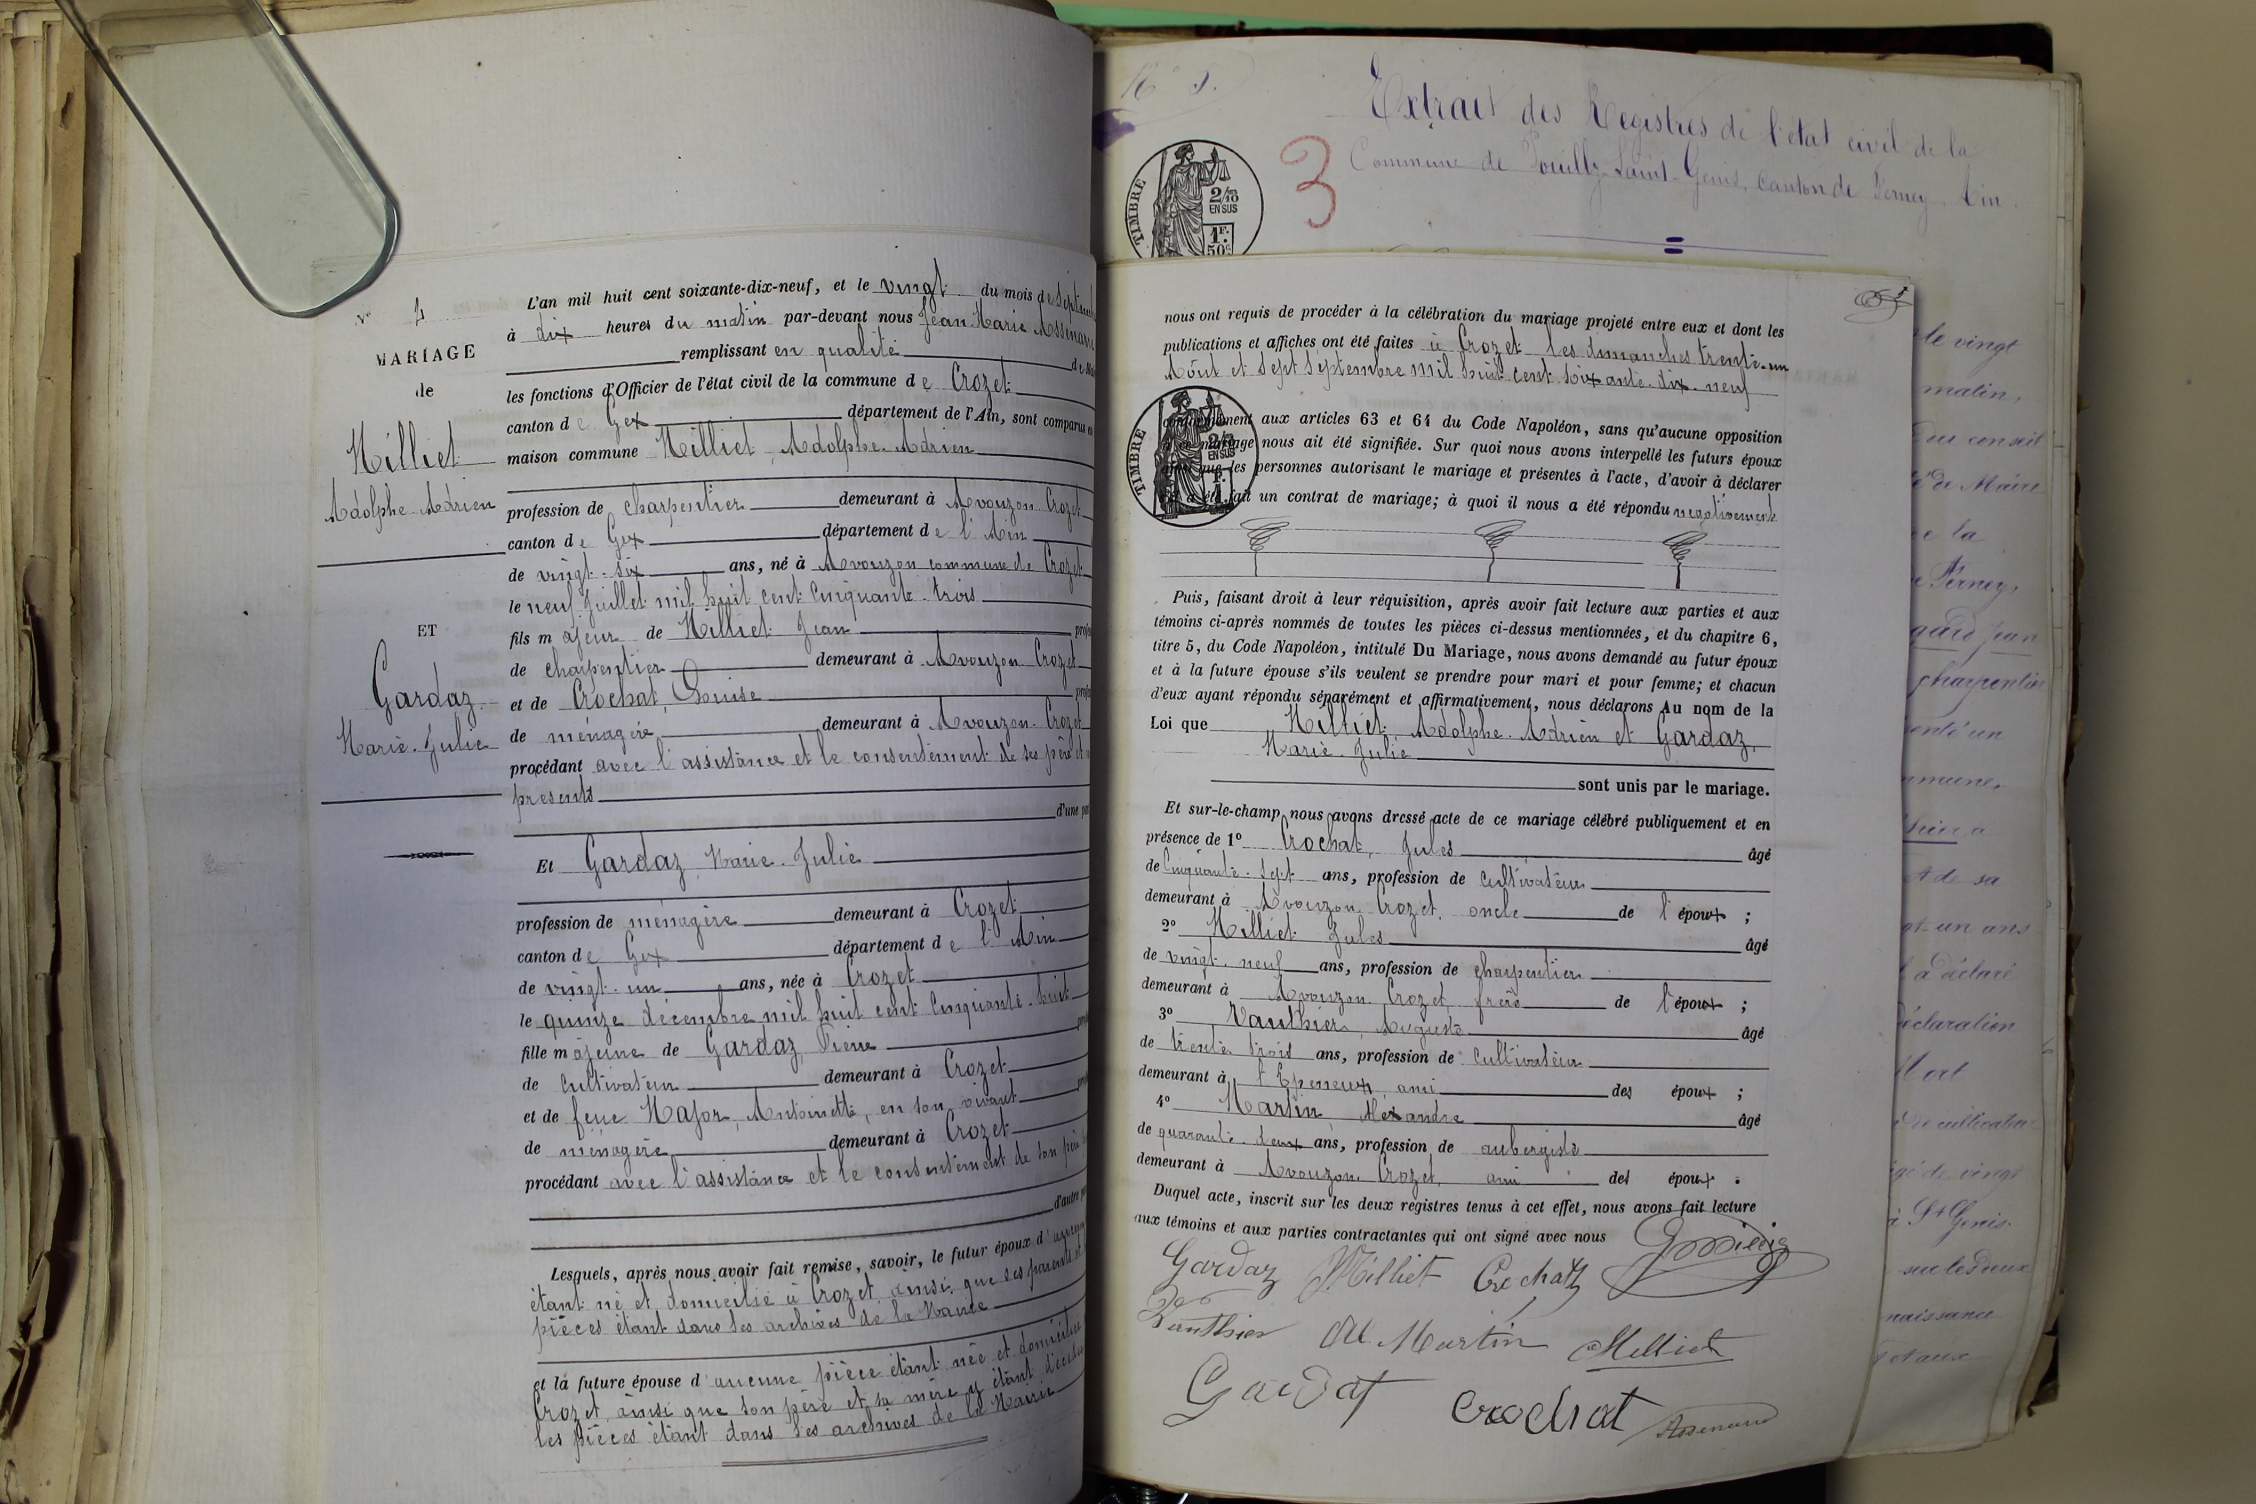 N° 4
MARIAGE
de
Milliet
Adolphe Adrien
ET
Gardaz
Marie Julie
L'an mil huit cent soixante-dix-neuf, et le vingt du mois de Septembre
à dix heures du matin par-devant nous Jean Marie
remplissant en qualité de
les fonctions d'Officier de l'état civil de la commune de Crozet
canton de Gex département de l'Ain, sont comparus en
maison commune Milliet, Adolphe Adrien
profession de charpentier demeurant à Avouzon Crozet
canton de Gex département de l'Ain
de vingt-six ans, né à Avouzon commune de Crozet
le neuf Juillet mil huit cent cinquante-trois
fils majeur de Milliet Jean
de charpentier demeurant à Avouzon Crozet
et de Crochat, Louise
de ménagère demeurant à Avouzon Crozet
procédant avec l'assistance et le consentement de ses père et
présents
d'une
Et Gardaz Marie Julie
profession de ménagère demeurant à Crozet
canton de Gex département de l'Ain
de vingt-un ans, née à Crozet
le quinze décembre mil huit cent cinquante-huit
fille majeure de Gardaz Pierre
de cultivateur demeurant à Crozet
et de feue Major, Antoinette, en son vivant
de ménagère demeurant à Crozet
procédant avec l'assistance et le consentement de son père
d'autre
Lesquels, après nous avoir fait remise, savoir, le futur époux d'aucune
étant né et domicilié à Crozet ainsi que ses parents et
pièces étant dans les archives de la Mairie
et la future épouse d'aucune pièce étant née et domiciliée
Crozet, ainsi que son père et sa mère y étant décédée
les pièces étant dans les archives de la Mairie
Extrait des Registres de l'état civil de la
Commune de Pouilly-Saint-Genis, canton de Ferney, Ain
3
TIMBRE
2/10
EN SUS
1F.
50c
nous ont requis de procéder à la célébration du mariage projeté entre eux et dont les
publications et affiches ont été faites à Crozet les dimanches trente-un
Août et sept Septembre mil huit cent soixante-dix-neuf
conformément aux articles 63 et 64 du Code Napoléon, sans qu'aucune opposition
mariage nous ait été signifiée. Sur quoi nous avons interpellé les futurs époux
que les personnes autorisant le mariage et présentes à l'acte, d'avoir à déclarer
a été fait un contrat de mariage; à quoi il nous a été répondu négativement
TIMBRE
2/10
EN SUS
1F.
Puis, faisant droit à leur réquisition, après avoir fait lecture aux parties et aux
témoins ci-après nommés de toutes les pièces ci-dessus mentionnées, et du chapitre 6,
titre 5, du Code Napoléon, intitulé Du Mariage, nous avons demandé au futur époux
et à la future épouse s'ils veulent se prendre pour mari et pour femme; et chacun
d'eux ayant répondu séparément et affirmativement, nous déclarons Au nom de la
Loi que Milliet, Adolphe Adrien et Gardaz,
Marie Julie
sont unis par le mariage.
Et sur-le-champ nous avons dressé acte de ce mariage célébré publiquement et en
présence de 1° Crochat, Jules âgé
de cinquante-sept ans, profession de cultivateur
demeurant à Avouzon Crozet, oncle de l'époux ;
2° Milliet Jules âgé
de vingt-neuf ans, profession de charpentier
demeurant à Avouzon Crozet frère de l'époux ;
3° Vauthier, Auguste âgé
de trente trois ans, profession de cultivateur
demeurant à ami des époux ;
4° Martin Alexandre âgé
de quarante-deux ans, profession de aubergiste
demeurant à Avouzon Crozet, ami des époux .
Duquel acte, inscrit sur les deux registres tenus à cet effet, nous avons fait lecture
aux témoins et aux parties contractantes qui ont signé avec nous
Gardaz Milliet Crochat
Vauthier Martin Milliet
Crochat
le vingt
matin,
du conseil
de Maire
de la
Ferney,
Jean
charpentier
un
commune,
de sa
un ans
a déclaré
déclaration
cultivateur
âgé de vingt
à St Genis
sur les deux
naissance